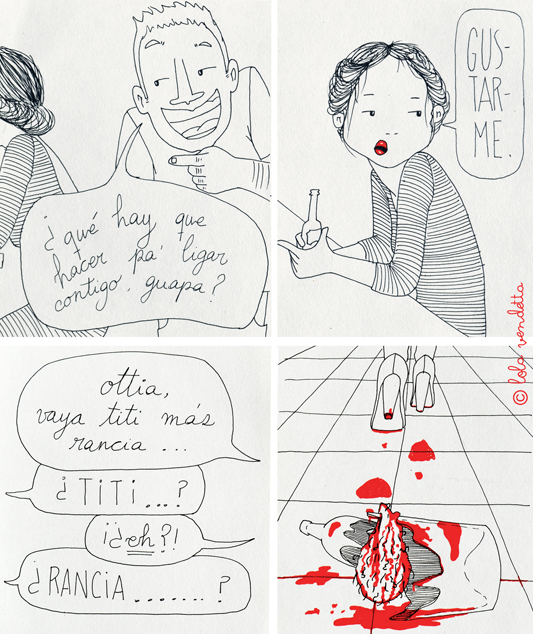 ¿qué hay que
hacer pa' ligar
contigo, guapa?
GUS-
TAR-
ME.
© lola vendetta
ottia,
vaya titi más
rancia ...
¿TiTi ...?
¡¿eh?!
¿RANCIA ....... ?